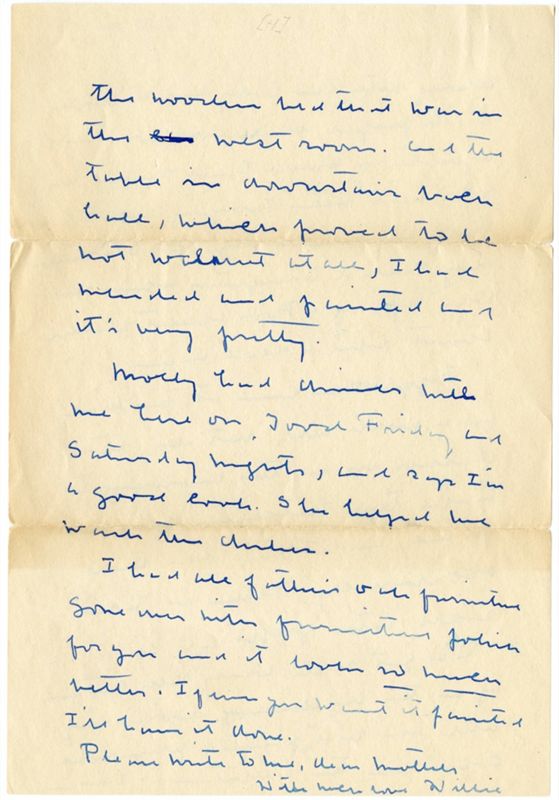 [4]
the wooden bed that was in
the west room. And the
table in downstairs back
hall, which proved to be
not walnut at all, I had
mended and painted and
it's very pretty.
Molly had dinner with
me here on Good Friday and
Saturday nights, and says I'm
a good cook. She helped me
wash the dishes.
I had all of this oak furniture
gone over with furniture polish
for you and it looks so much
better. If you want it painted
I'll have it done.
Please write to me, dear mother.
With much love Willie